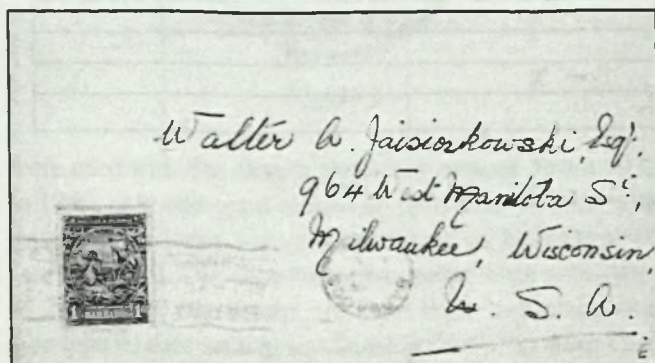 Walter A. Jaisiorkowski, Esqr.,
964 West Manitoba St.,
Milwaukee, Wisconsin,
U. S. A.
1 BARBADOS 1